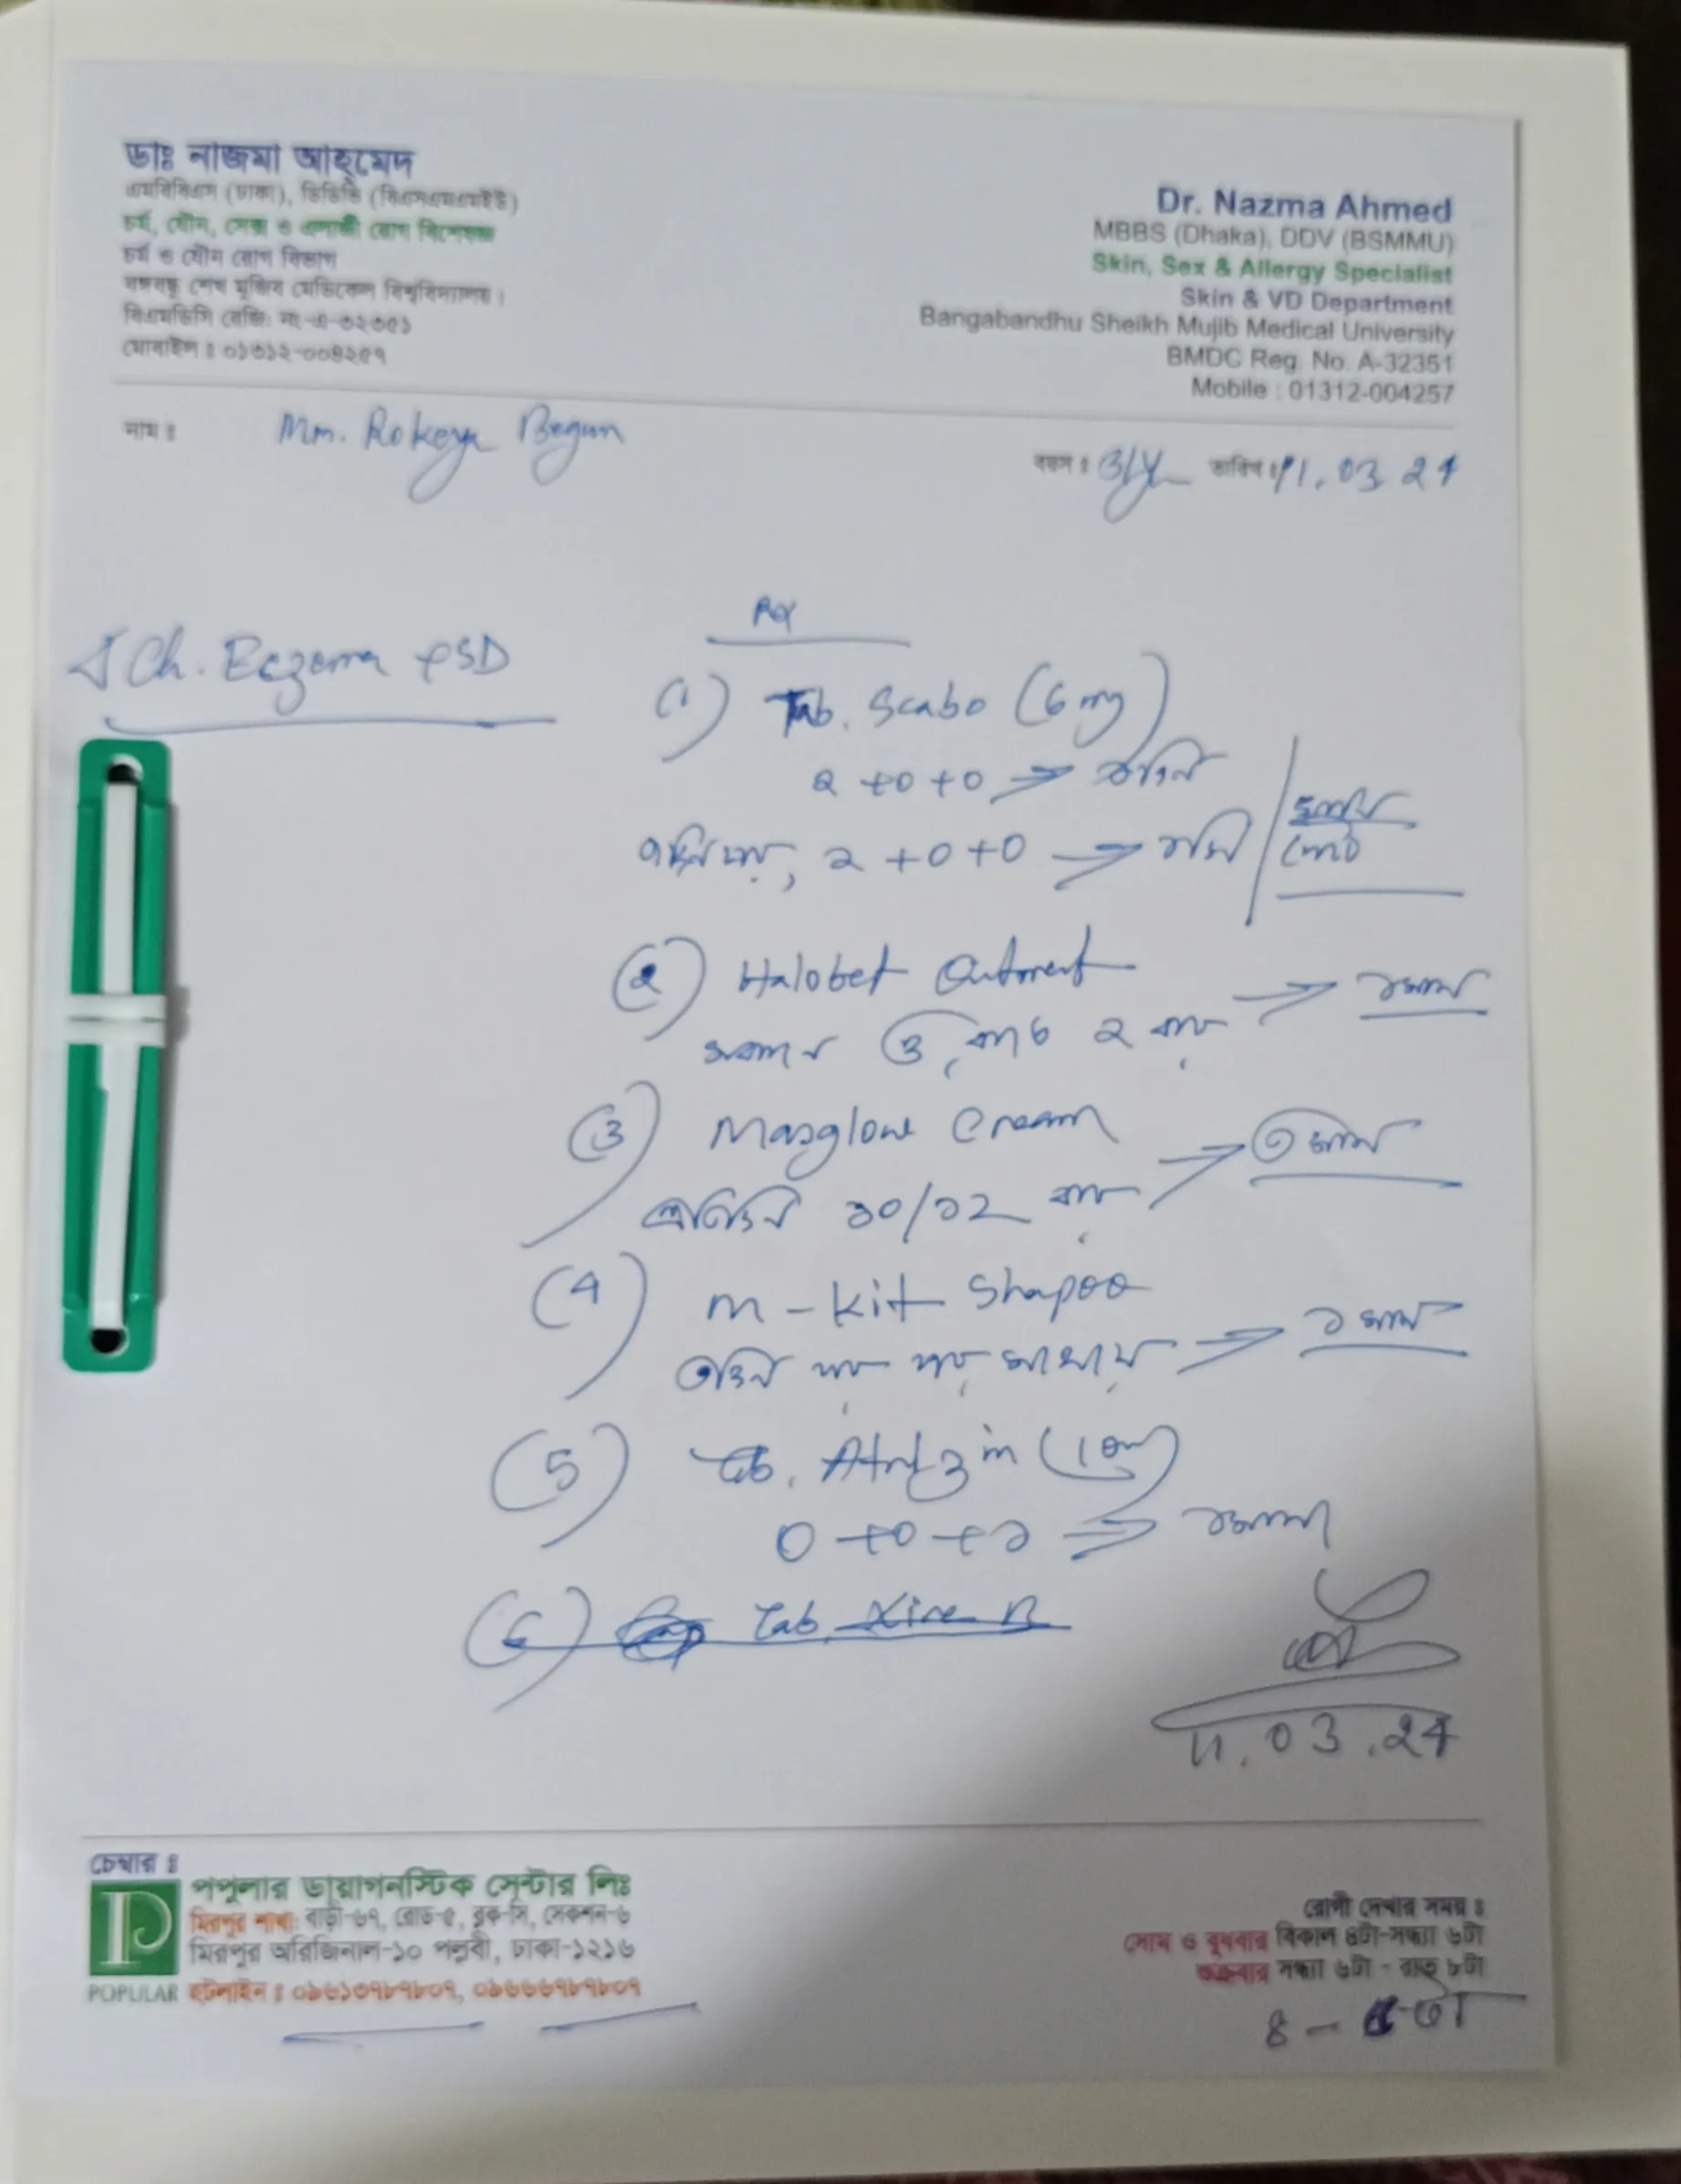 ডাঃ নাজমা আহ্‌মেদ
এমবিবিএস (ঢাকা), ডিডিভি (বিএসএমএমইউ)
চর্ম, যৌন, সেক্স ও এলার্জী রোগ বিশেষজ্ঞ
চর্ম ও যৌন রোগ বিভাগ
বঙ্গবন্ধু শেখ মুজিব মেডিকেল বিশ্ববিদ্যালয়।
বিএমডিসি রেজি: নং-এ-৩২৩৫১
মোবাইল ঃ ০১৩১২-০০৪২৫৭
Dr. Nazma Ahmed
MBBS (Dhaka), DDV (BSMMU)
Skin, Sex & Allergy Specialist
Skin & VD Department
Bangabandhu Sheikh Mujib Medical University
BMDC Reg. No. A-32351
Mobile : 01312-004257
নাম ঃ Rokeya Begum
বয়স ঃ তারিখ ঃ 11.03.24
Ch. Eczema
Rx
(1) Tab. Scabo (6 mg)
২+০+০
২+০+০
(2) Halobet Ointment
সকালে ও রাতে ২ বার ১ মাস
(3) Maxglow Cream
প্রতিদিন ১০/১২ বার ৩ মাস
(4) M-Kit Shapoo
পর পর মাথায় ১ মাস
(5) (10mg)
0+0+১ ১ মাস
(6) Tab.
11.03.24
চেম্বার ঃ
পপুলার ডায়াগনস্টিক সেন্টার লিঃ
মিরপুর শাখা: বাড়ী-৬৭, রোড-৫, ব্লক-সি, সেকশন-৬
মিরপুর অরিজিনাল-১০ পল্লবী, ঢাকা-১২১৬
POPULAR হটলাইন ঃ ০৯৬১৩৭৮৭৮০৭, ০৯৬৬৬৭৮৭৮০৭
রোগী দেখার সময় ঃ
সোম ও বুধবার বিকাল ৪টা-সন্ধ্যা ৬টা
শুক্রবার সন্ধ্যা ৬টা - রাত ৮টা